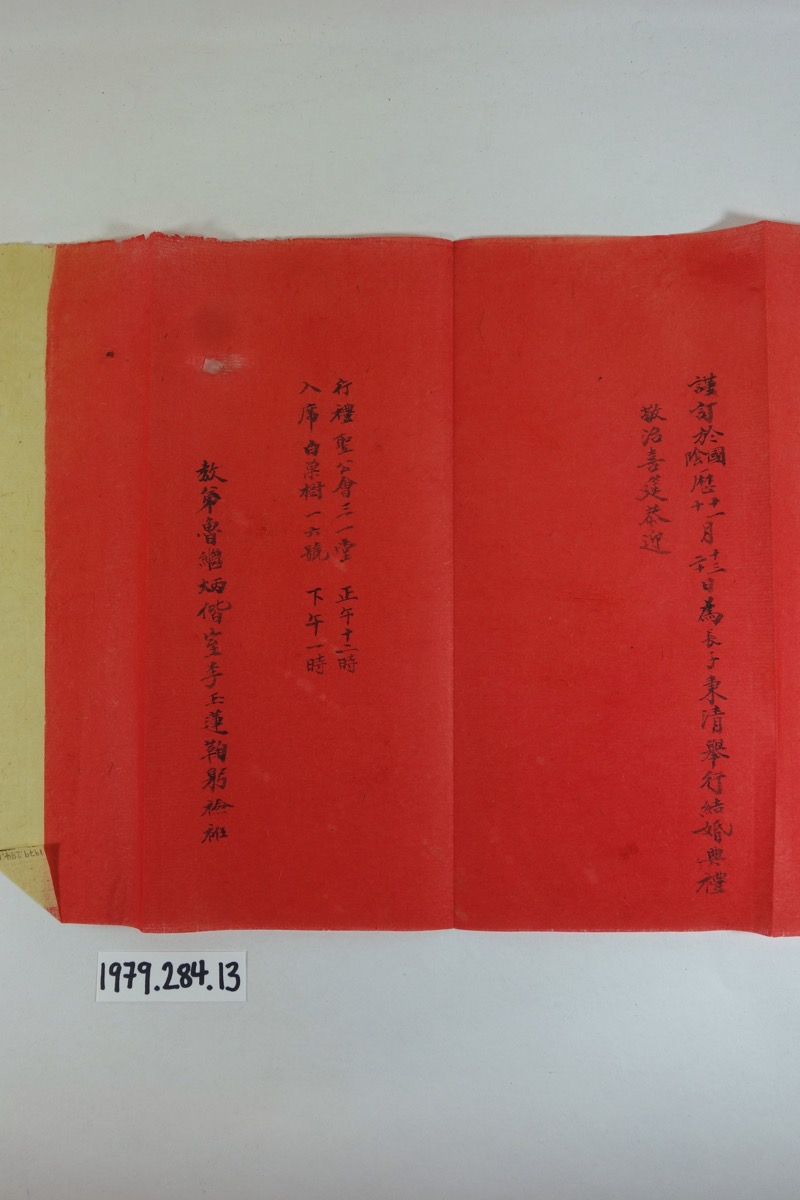 謹訂於國陰歷十一十月十三二十日為長子秉清舉行結婚典禮
敬治喜筵恭迎
行禮聖公會三一堂 正午十二時
入席白栗樹一六號 下午一時
教弟魯繼炳偕室李玉蓮鞠躬襝衽
1979.284.13